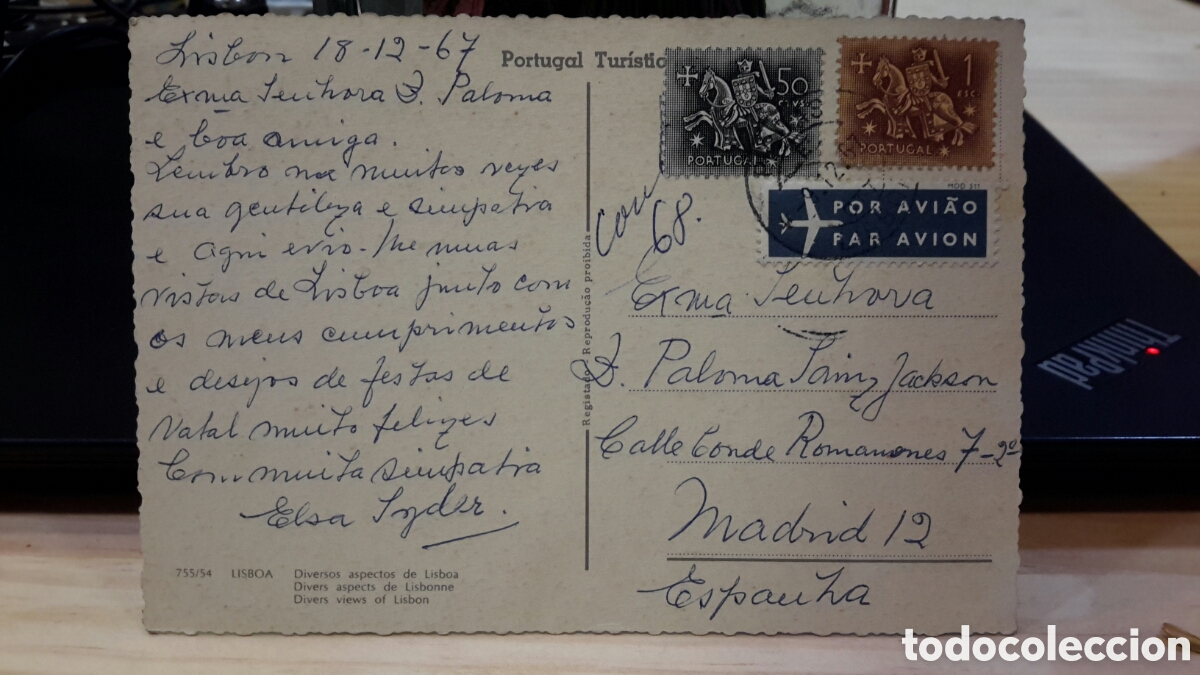 Lisbon 18-12-67
Exma Senhora D. Paloma
e boa amiga.
Lembro me muitas vezes
sua gentileza e simpatia
e aqui evio-lhe umas
vistas de Lisboa junto com
os meus cumprimentos
e desejos de festas de
Natal muito felizes
Com muita simpatia
Elsa
755/54 LISBOA Diversos aspectos de Lisboa
Divers aspects de Lisbonne
Divers views of Lisbon
Portugal Turístic
Registado Reprodução proibida
50
CTVS
PORTUGAL
1
ESC.
PORTUGAL
MOD 511
POR AVIÃO
PAR AVION
68.
Exma Senhora
D. Paloma Sainz Jackson
Calle Conde Romanones 7-2º
Madrid 12
Espanha
ThinkPad
todocoleccion